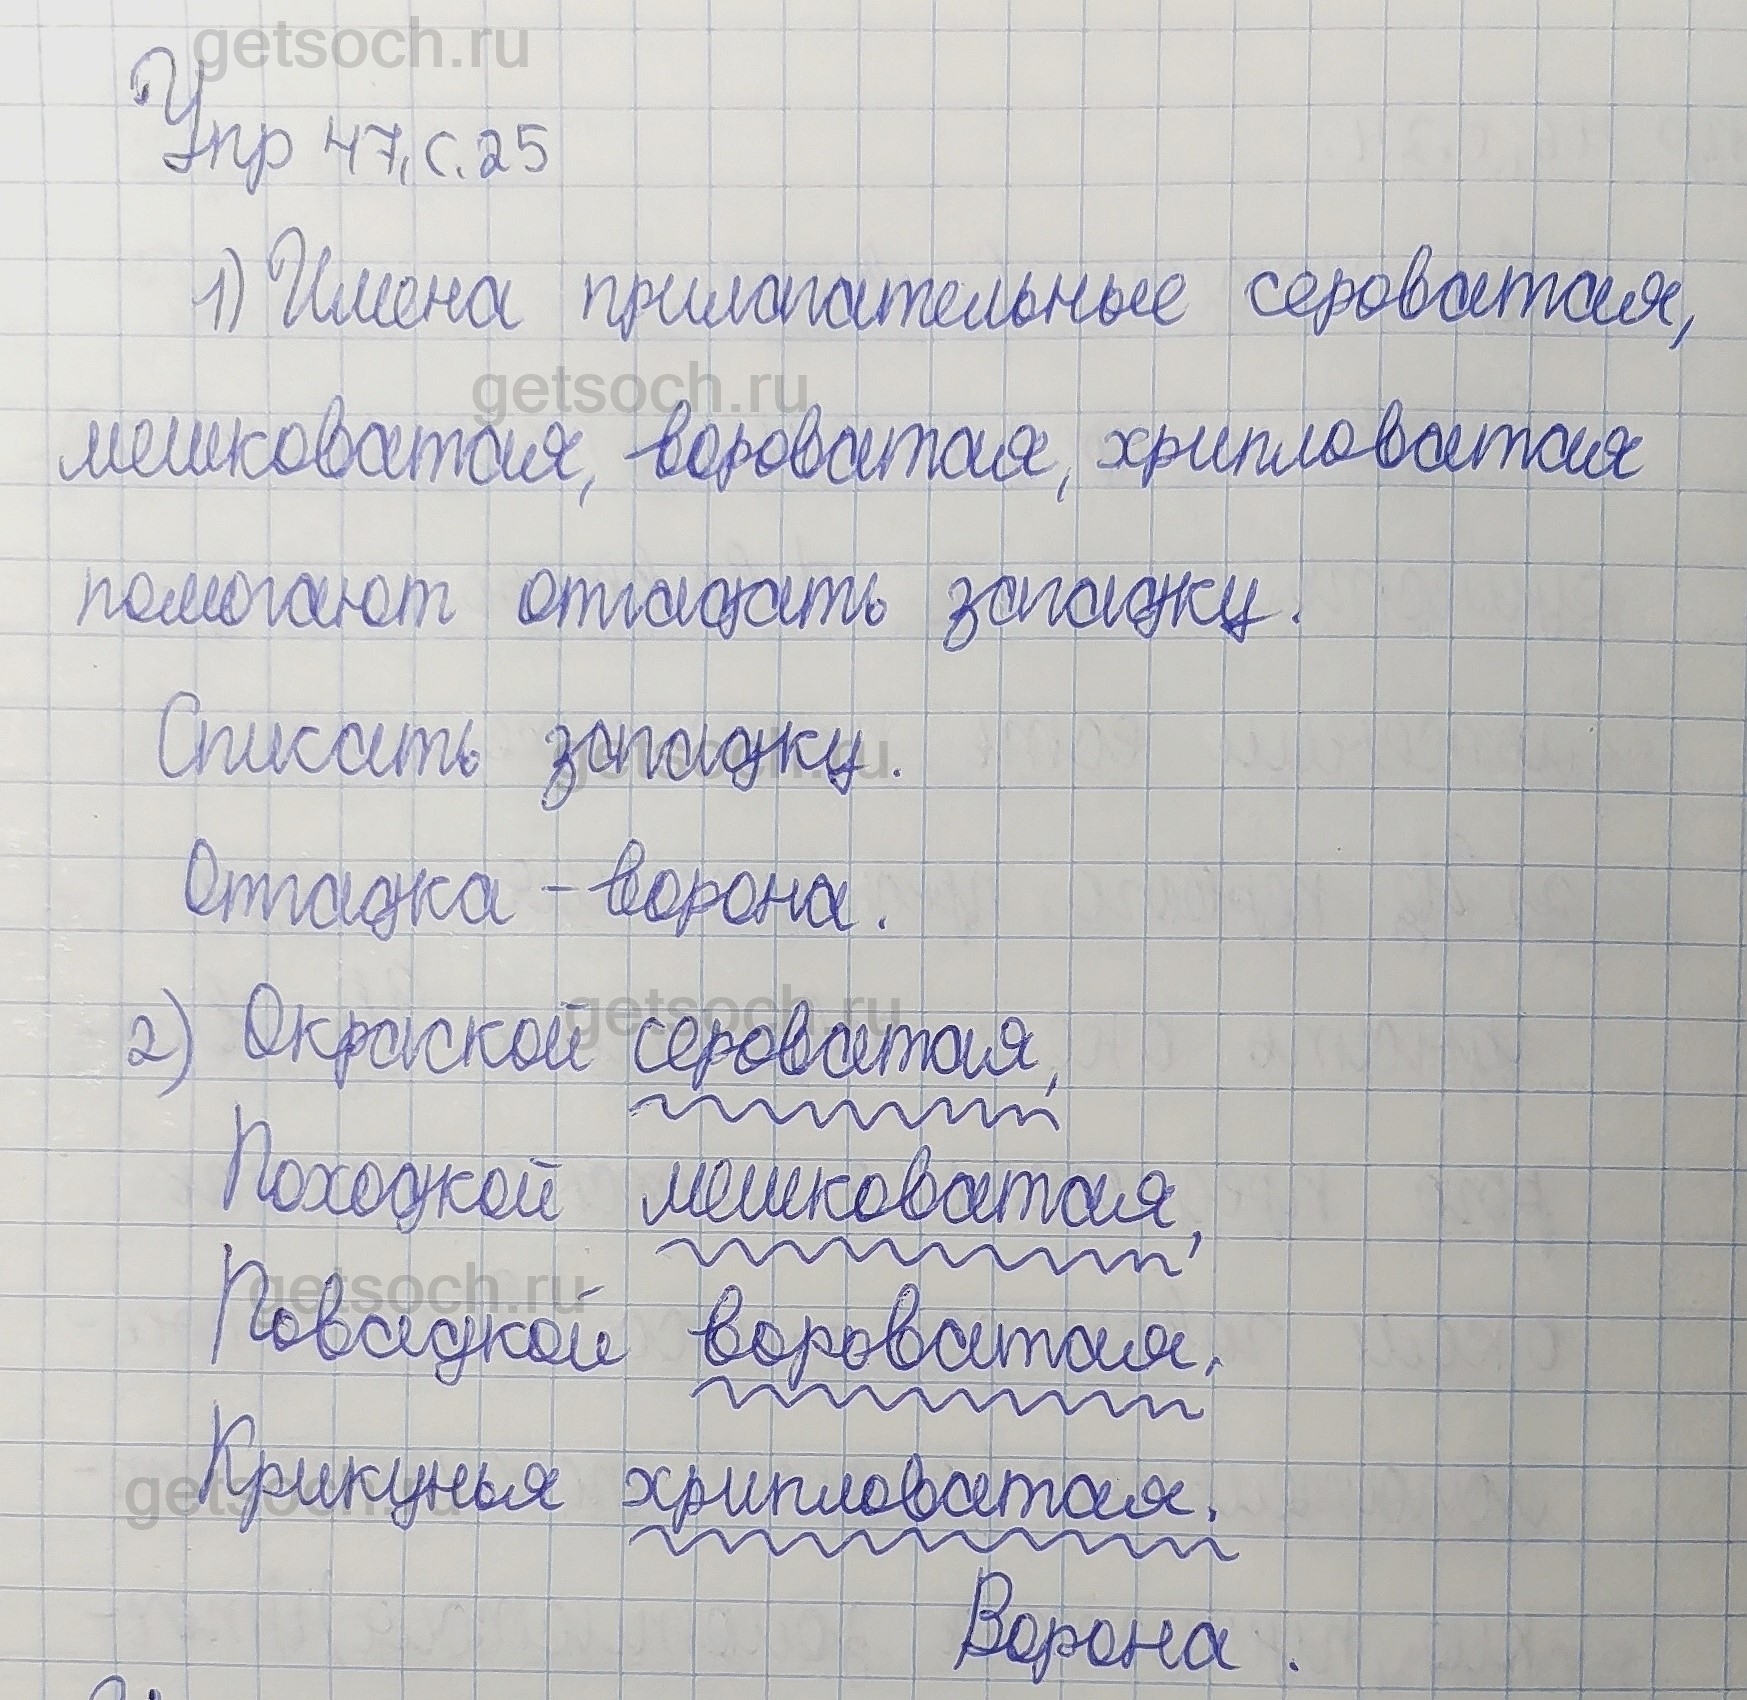 getsoch.ru
Упр 47, с. 25
1) Имена прилагательные сероватая,
getsoch.ru
мешковатая, вороватая, хрипловатая
помогают отгадать загадку.
Списать загадку.
getsoch.ru
Отгадка – ворона.
getsoch.ru
2) Окраской сероватая,
Походкой мешковатая,
getsoch.ru
Повадкой вороватая.
Крикунья хрипловатая.
getsoch.ru
Ворона.